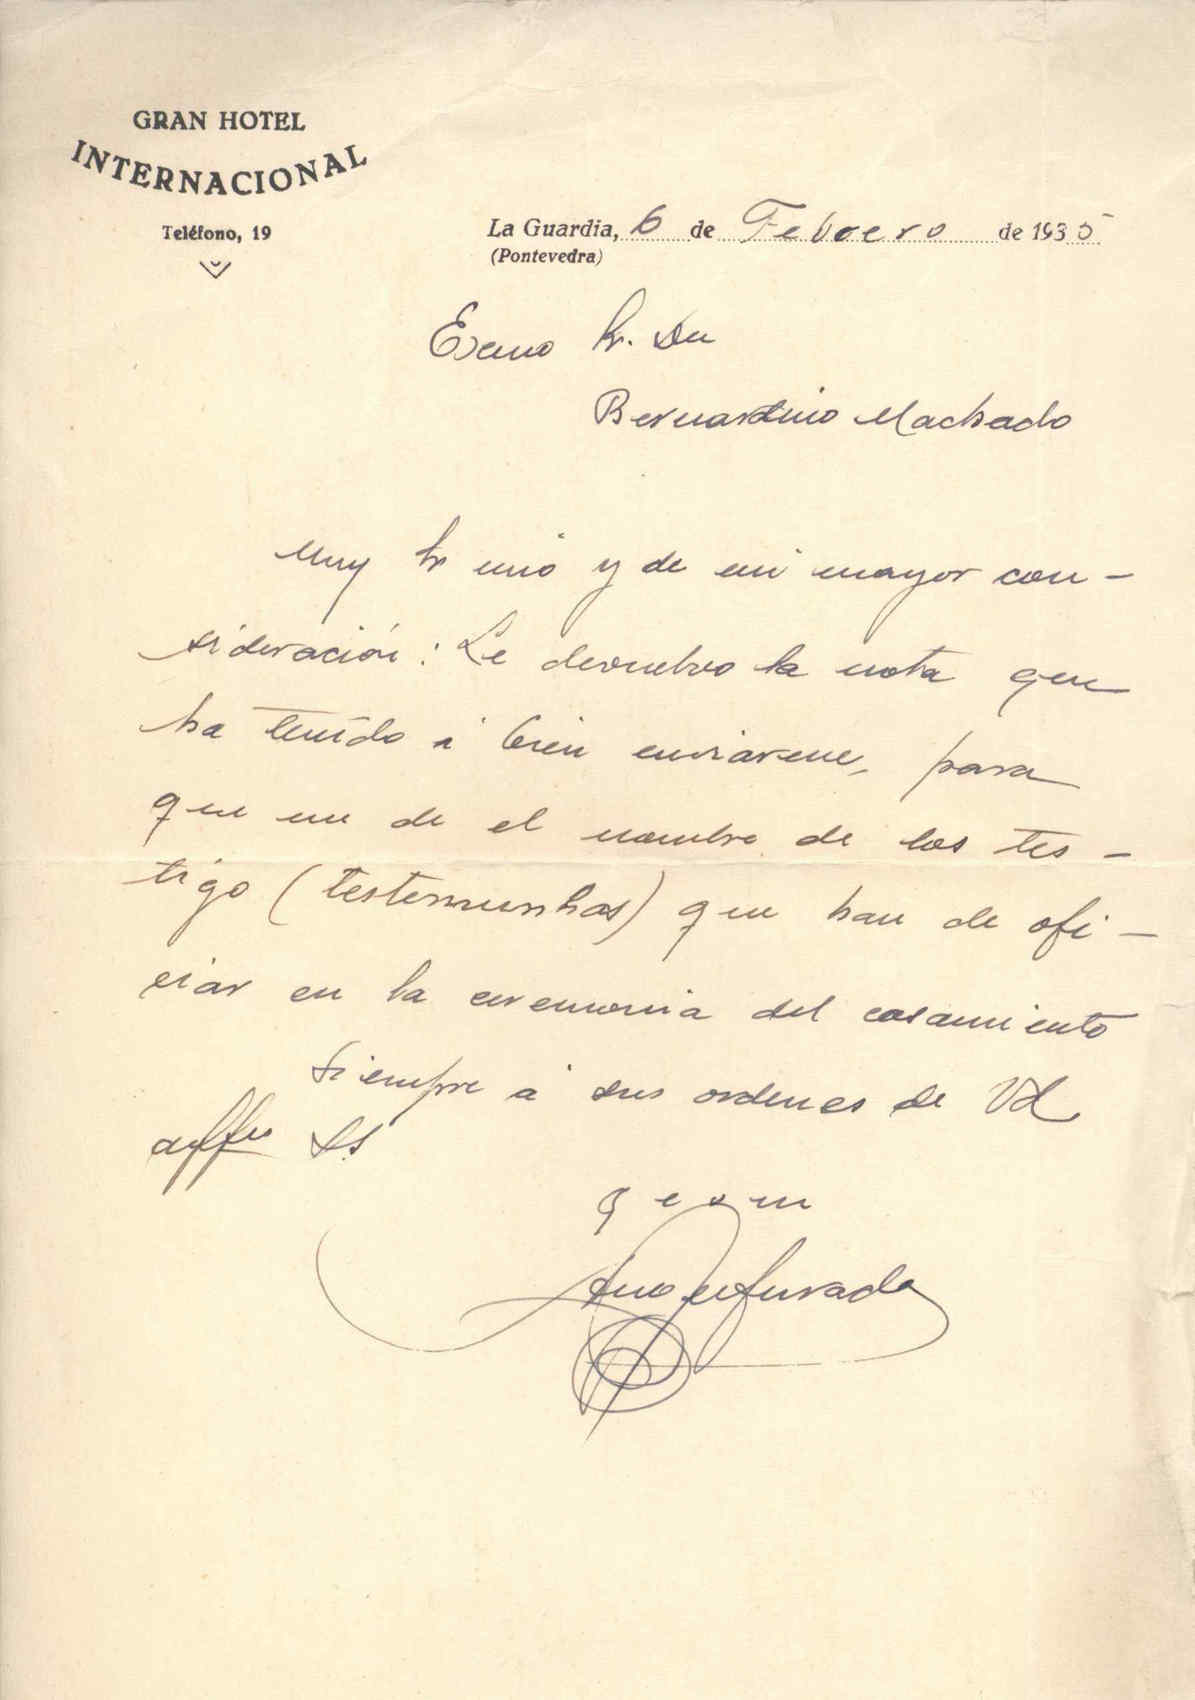 GRAN HOTEL
INTERNACIONAL
Teléfono, 19
La Guardia, 6 de Febrero de 1935
(Pontevedra)
Exmo Sr. Dn
Bernardino Machado
Muy Sr mio y de mi mayor con-
sideración: Le devuelvo la nota que
ha tenido á bien enviarme, para
que me de el nombre de los tes-
tigo (testemunhas) que han de ofi-
ciar en la ceremonia del casamiento
Siempre á sus ordenes de Vd
affmo SS
q e s m